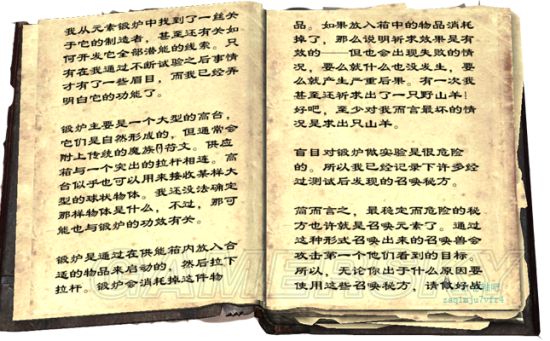 我从元素锻炉中找到了一丝关
于它的制造者，甚至还有关如
何开发它全部潜能的线索。只
有在我通过不断试验之后事情
才有了一些眉目，而我已经弄
明白它的功能了。
锻炉主要是一个大型的高台，
它们是自然形成的，但通常会
附上传统的魔族符文。供应
箱与一个突出的拉杆相连。高
台似乎也可以用来接收某样大
型的球状物体。我还没法确定
那样物体是什么，不过，那可
能也与锻炉的功效有关。
锻炉是通过在供能箱内放入合
适的物品来启动的，然后拉下
拉杆。锻炉会消耗掉这件物
品。如果放入箱中的物品消耗
掉了，那么说明祈求效果是有
效的——但也会出现失败的情
况，要么就什么也没发生，要
么就产生严重后果。有一次我
甚至还祈求出了一只野山羊！
好吧，至少对我而言最坏的情
况是求出只山羊。
盲目对锻炉做实验是很危险
的。所以我已经记录下许多经
过测试后发现的召唤秘方。
简而言之，最稳定而危险的秘
方也许就是召唤元素了。通过
这种形式召唤出来的召唤兽会
攻击第一个他们看到的目标。
所以，无论你出于什么原因要
使用这些召唤秘方，请做好战
GAMERSKY
zaq1mju7vfr4